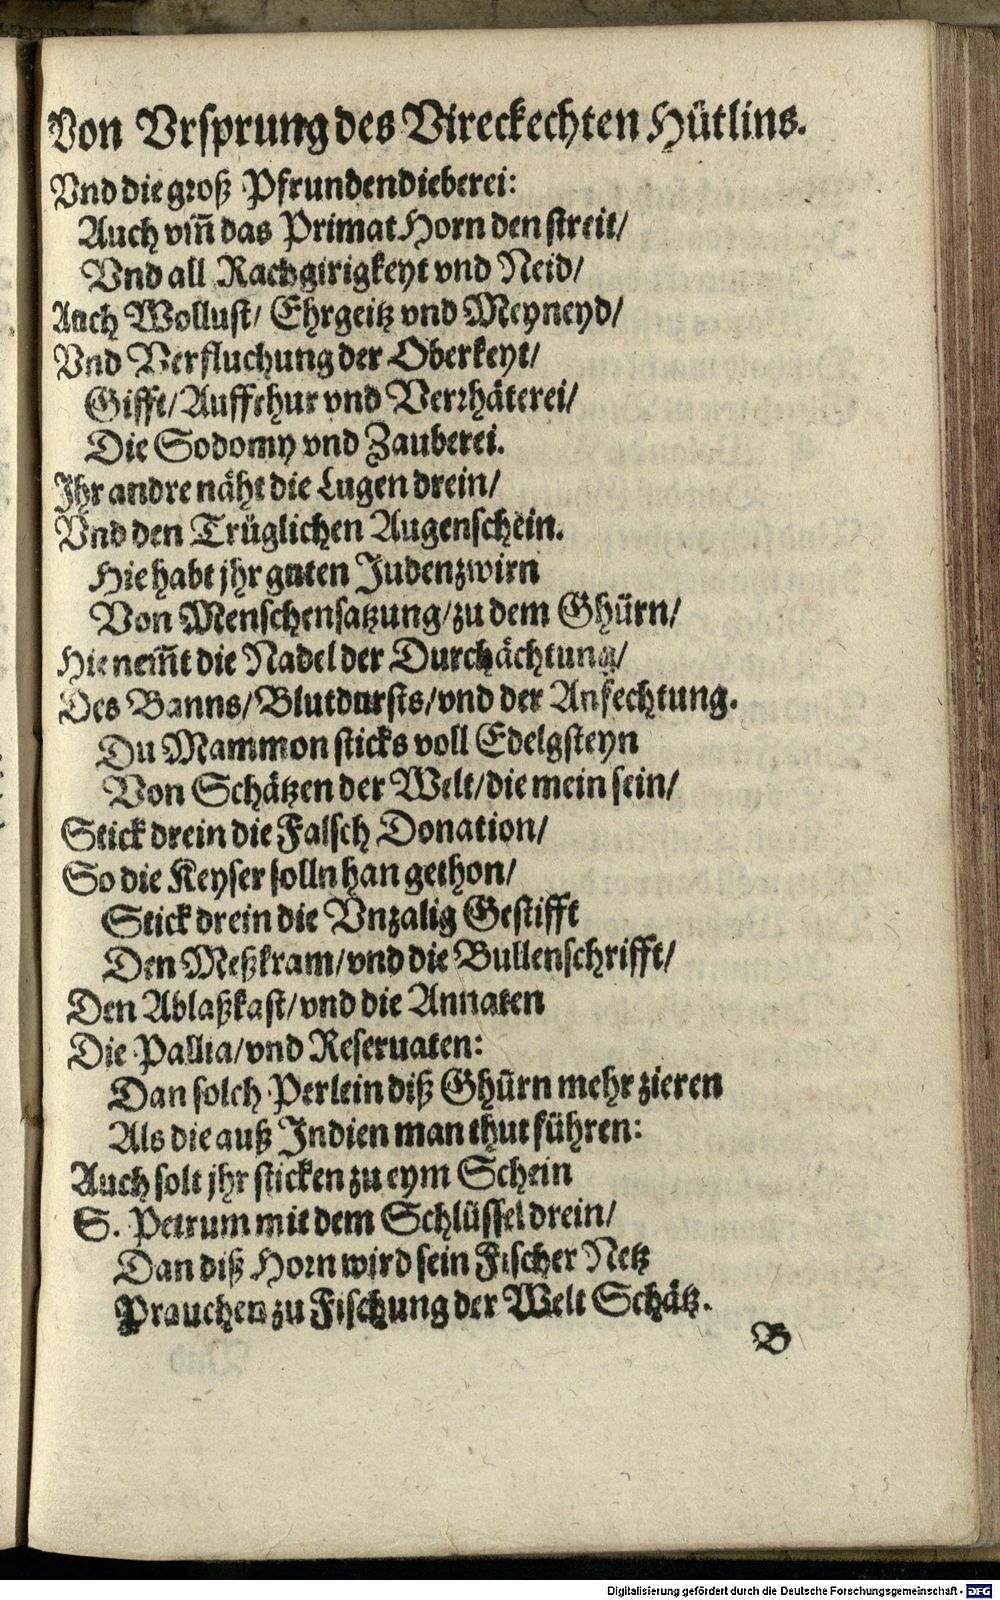 Von Vrsprung des Vireckechten Hütlins.
Vnd die groß Pfrundendieberei:
Auch vm̃ das Primat Horn den streit/
Vnd all Rachgirigkeyt vnd Neid/
Auch Wollust/ Ehrgeitz vnd Meyneyd/
Vnd Verfluchung der Oberkeyt/
Gifft/ Auffrhur vnd Verrhäterei/
Die Sodomy vnd Zauberei.
Ihr andre näht die Lugen drein/
Vnd den Trüglichen Augenschein.
Hie habt jhr guten Judenzwirn
Von Menschensatzung/ zu dem Ghürn/
Hie nem̃t die Nadel der Durchächtung/
Des Banns/ Blutdursts/ vnd der Anfechtung.
Du Mammon sticks voll Edelgsteyn
Von Schätzen der Welt/ die mein sein/
Stick drein die Falsch Donation/
So die Keyser solln han gethon/
Stick drein die Vnzalig Gestifft
Den Meßkram/ vnd die Bullenschrifft/
Den Ablaßkast/ vnd die Annaten
Die Pallia/ vnd Reseruaten:
Dan solch Perlein diß Ghürn mehr zieren
Als die auß Indien man thut führen:
Auch solt jhr sticken zu eym Schein
S. Petrum mit dem Schlüssel drein/
Dan diß Horn wird sein Fischer Netz
Prauchen zu Fischung der Welt Schätz.
B
Digitalisierung gefördert durch die Deutsche Forschungsgemeinschaft - DFG